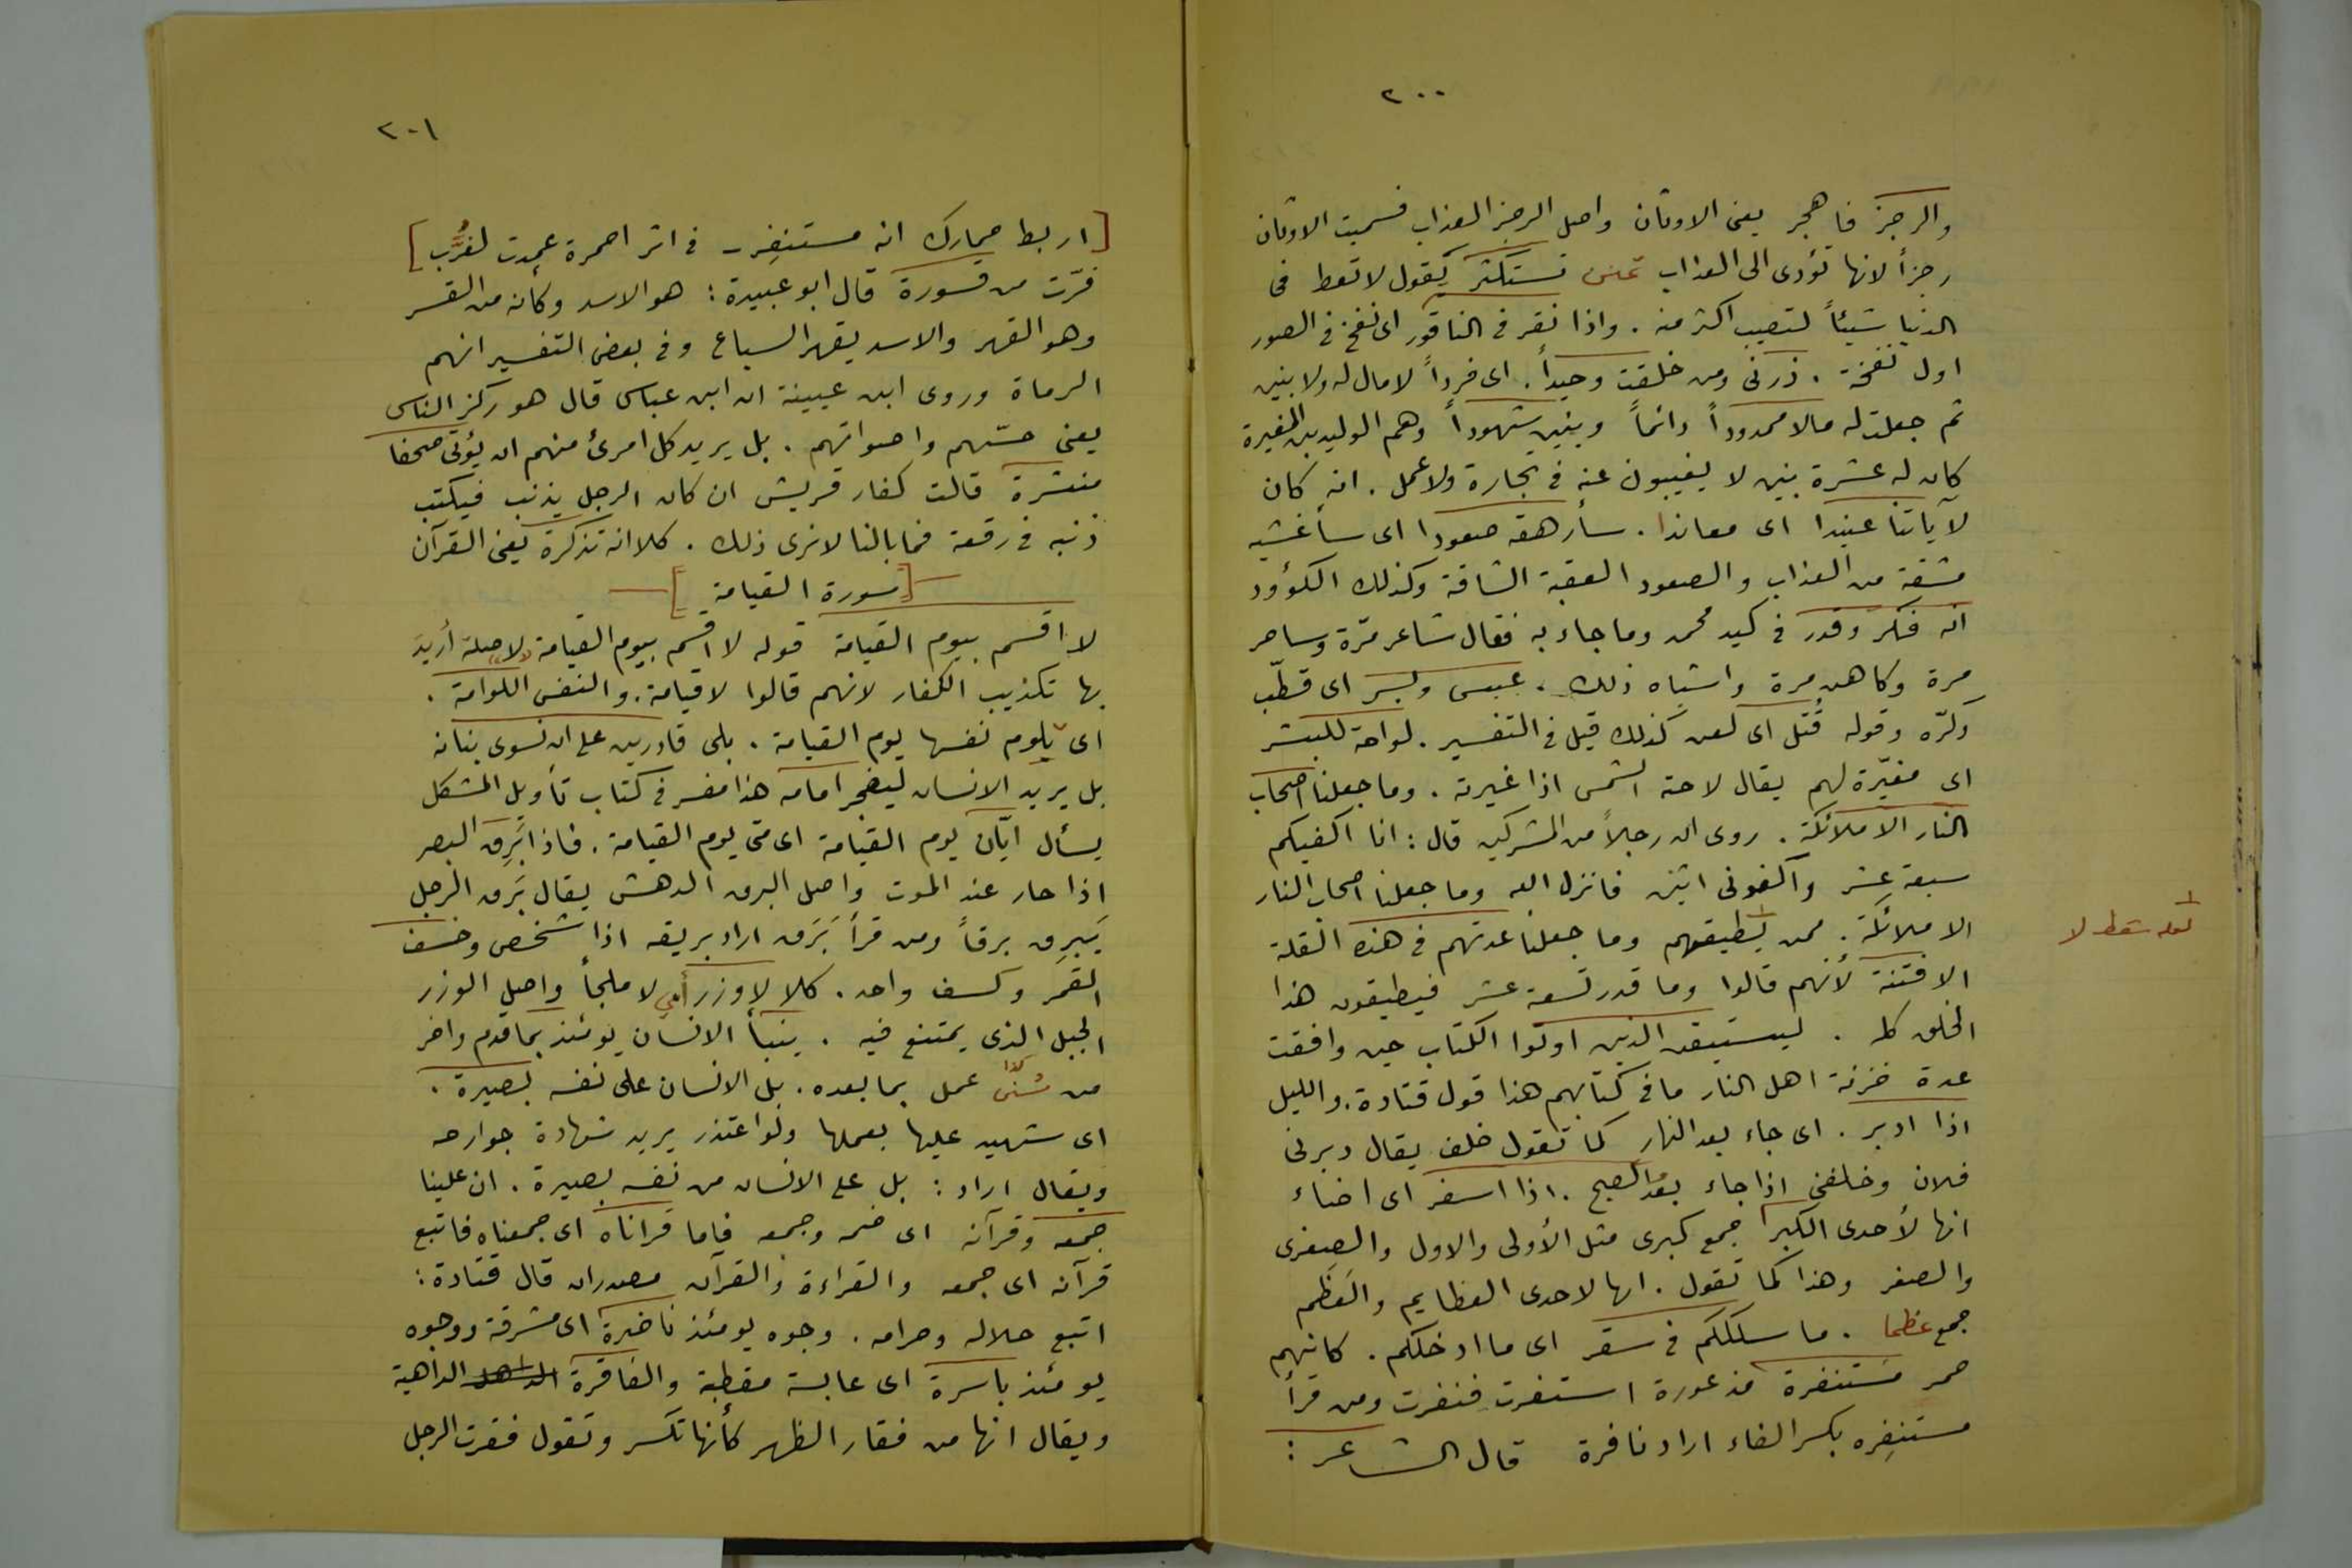 ٢٠٠
والرجز فاهجر يعنى الاوثان واصل الرجز العذاب فسميت الاوثان
رجزأ لانها تؤدى الى العذاب تمنن تستكثر يقول لا تعط فى
الدنيا شيئاً لتصيب اكثر منه . واذا نقر فى الناقور اى نفخ فى الصور
اول نفخة . ذرنى ومن خلقت وحيداً . اى فرداً لا مال له ولا بنين
ثم جعلت له مالا ممدوداً دائماً وبنين شهوداً وهم الوليد بن المغيرة
كان له عشرة بنين لا يغيبون عنه فى تجارة ولا عمل . انه كان
لآياتنا عنيدا اى معاندا . سأرهقه صعودا اى سأغشيه
مشقة من العذاب والصعود العقبة الشاقة وكذلك الكؤود
انه فكر وقدر فى كيد محمد وما جاء به فقال شاعر مرّة وساحر
مرة وكاهن مرة واشباه ذلك . عبس وبسر اى قطّب
وكرّه وقوله قُتل اى لعن كذلك قيل فى التفسير . لواحة للبشر
اى مغيّرة لهم يقال لاحته الشمس اذا غيرته . وما جعلنا اصحاب
النار الا ملائكة . روى ان رجلاً من المشركين قال : انا اكفيكم
سبعة عشر واكفونى اثنين فانزل الله وما جعلنا اصحاب النار
الا ملائكة . فمن يطيقهم وما جعلنا عدتهم فى هذه القلة
لعله سقط لا
الا فتنة لأنهم قالوا وما قدر تسعة عشر فيطيقون هذا
الخلق كله . ليستيقن الذين اوتوا الكتاب حين وافقت
عدة خزنة اهل النار ما فى كتابهم هذا قول قتادة . والليل
اذا ادبر . اى جاء بعد النهار كما تقول خلف يقال دبرنى
فلان وخلفنى اذا جاء بعد والصبح . اذا اسفر اى اضاء
انها لأحدى الكبر جمع كبرى مثل الأولى والاول والصغرى
والصغر وهذا كما تقول . انها لاحدى العظايم والعُظَم
جمع عظما . ما سلككم فى سقر اى ما ادخلكم . كانهم
حمر مستنفرة مذعورة استنفرت فنفرت ومن قرأ
مستنفِره بكسر الفاء اراد نافرة قال الشاعر :
٢٠١
[اربط حمارك انه مستنفِر - فى اثر احمرة عمِدت لغُرَّب]
فرّت من قسورة قال ابو عبيدة : هو الاسد وكأنه من القسر
وهو القهر والاسد يقهر السباع وفى بعض التفسير انهم
الرماة وروى ابن عيينة ان ابن عباس قال هو ركز الناس
يعنى حسّهم واصواتهم . بل يريد كل امرئ منهم ان يؤتى صحفا
منشرة قالت كفار قريش ان كان الرجل يذنب فيكتب
ذنبه فى رقعة فما بالنا لا نرى ذلك . كلا انه تذكرة يعنى القرآن
[سورة القيامة]
لا اقسم بيوم القيامة قوله لا اقسم بيوم القيامة لا صلة أريد
بها تكذيب الكفار لانهم قالوا لا قيامة . والنفس اللوامة .
اى يلوم نفسها يوم القيامة . بلى قادرين على ان نسوى بنانه
بل يريد الانسان ليفجر امامه هذا مفسر فى كتاب تأويل المشكل
يسأل ايّان يوم القيامة اى متى يوم القيامة . فاذا بَرِق البصر
اذا حار عند الموت واصل البرق الدهش يقال بَرِق الرجل
يَبرِق برقاً ومن قرأ بَرَق اراد بريقه اذا شخص وخسف
القمر وكسف واحد . كلا لا وزر أى لا ملجأ واصل الوزر
الجبل الذى يمتنع فيه . ينبأ الانسان يومئذ بما قدم واخر
من سُنّى عمل بما بعده . بل الانسان على نفسه بصيرة .
اى شهيد عليها بعملها ولو اعتذر يريد شهادة جوارحه
ويقال اراد : بل على الانسان من نفسه بصيرة . ان علينا
جمعه وقرآنه اى ضمه وجمعه فاما قراناه اى جمعناه فاتبع
قرآنه اى جمعه والقراءة والقرآن مصدران قال قتادة :
اتبع حلاله وحرامه . وجوه يومئذ ناضرة اى مشرقة ووجوه
يومئذ باسرة اى عابسة مقطبة والفاقرة الداهية
ويقال انها من فقار الظهر كأنها تكسر وتقول فقرت الرجل